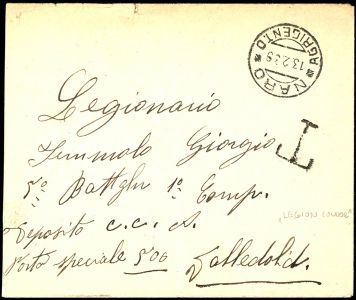 NARO * AGRIGENTO *
13.2.38
T
Legionario
Jemmolo Giorgio
5º Battgln 1º Comp.
Deposito c.c. A.
Posta speciale 500
Valledolid.
"LEGION CONDOR"